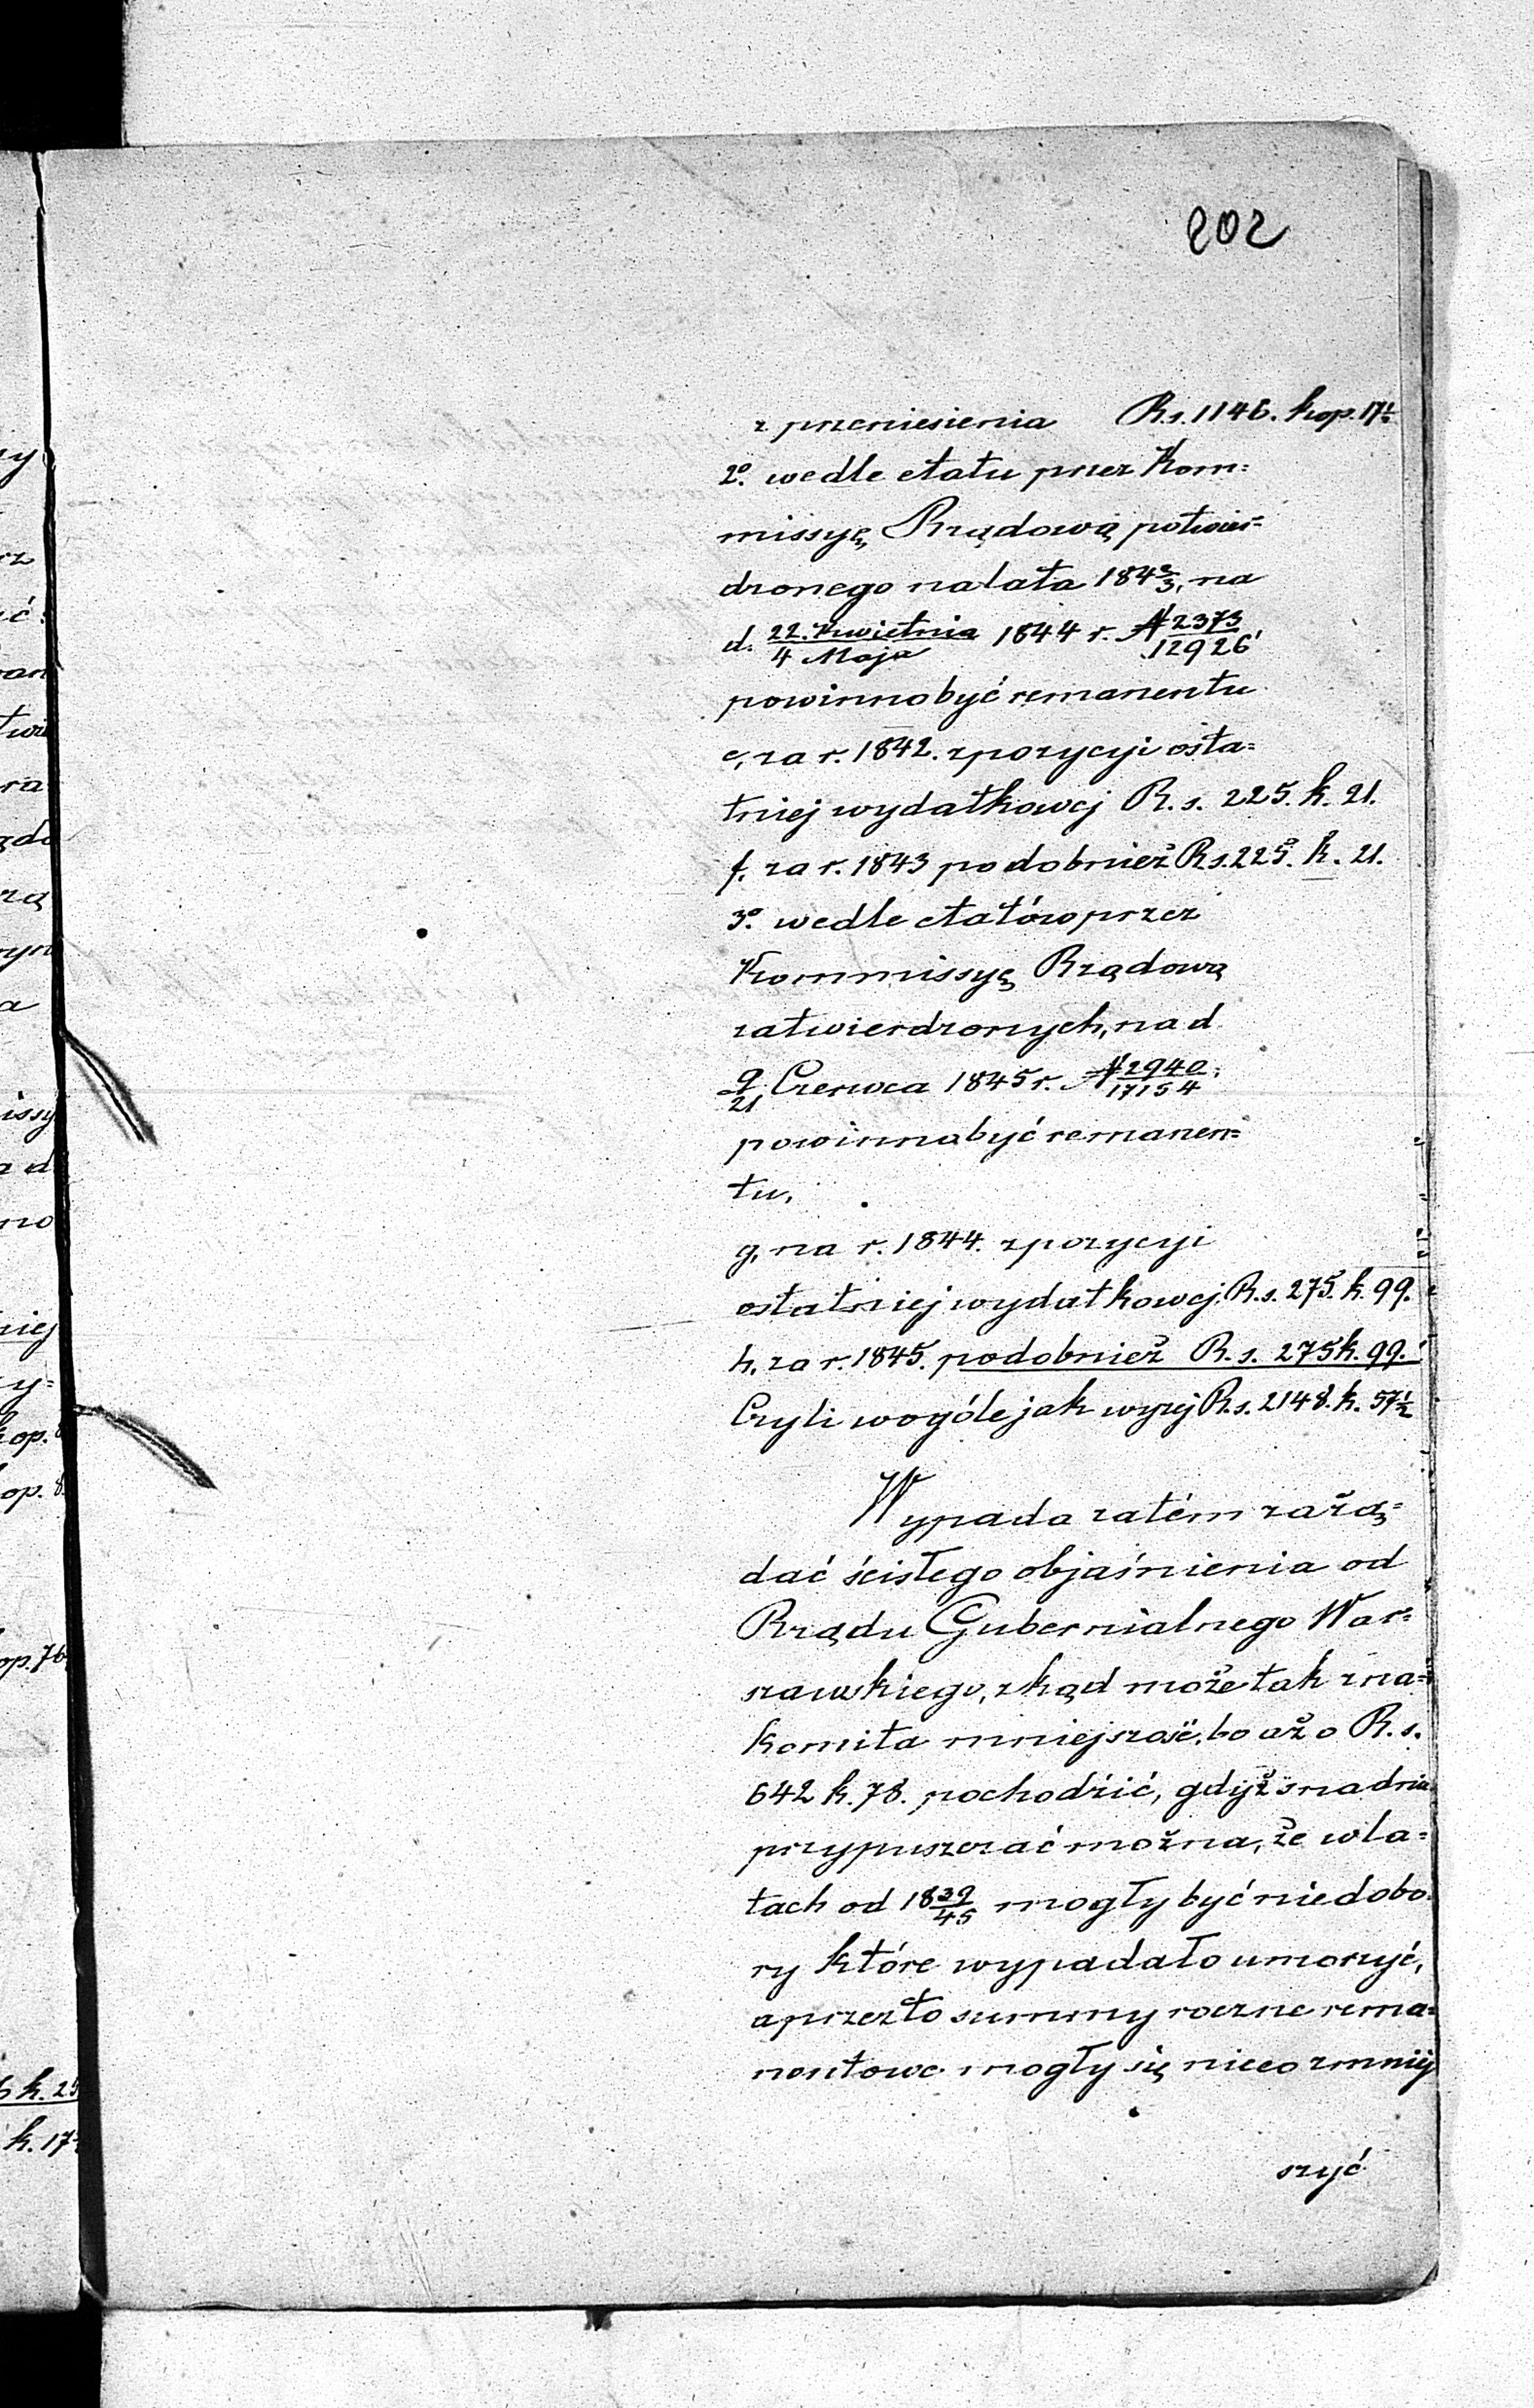 202
z przeniesienia Rs. 1146. kop. 17½
2º. wedle etatu przez Kom=
missyę Rządową potwier=
dzonego na lata 184 2/3, na
d. 22. Kwietnia/4 Maja 1844 r. № 2373/12926
powinno być remanentu
e, za r. 1842. z pozycyi osta=
tniej wydatkowej R. s. 225. k. 21.
f. za r. 1843 podobnież R s. 225. k. 21.
3º. wedle etatów przez
Kommissyę Rządową
zatwierdzonych, na d.
9/21 Czerwca 1845 r. № 2940/17154
powinna być remanen=
tu.
g, na r. 1844. z pozycyi
ostatniej wydatkowej. R. s. 275. k. 99.
h, za r. 1845. podobnież R. s. 275 k. 99.
Czyli wogóle jak wyżej R. s. 2148. k. 57½
Wypada zatém zażą=
dać ścisłego objaśnienia od
Rządu Gubernialnego War=
szawskiego, zkąd może tak zna=
komita mniejszość, bo aż o R. s.
642 k. 78. pochodzić, gdyż snadnie
przypuszczać można, że w la=
tach od 18 39/45 mogły być niedobo=
ry które wypadało umorzyć,
a przez to summy roczne rema=
nentowe mogły się nieco zmniej
szyć